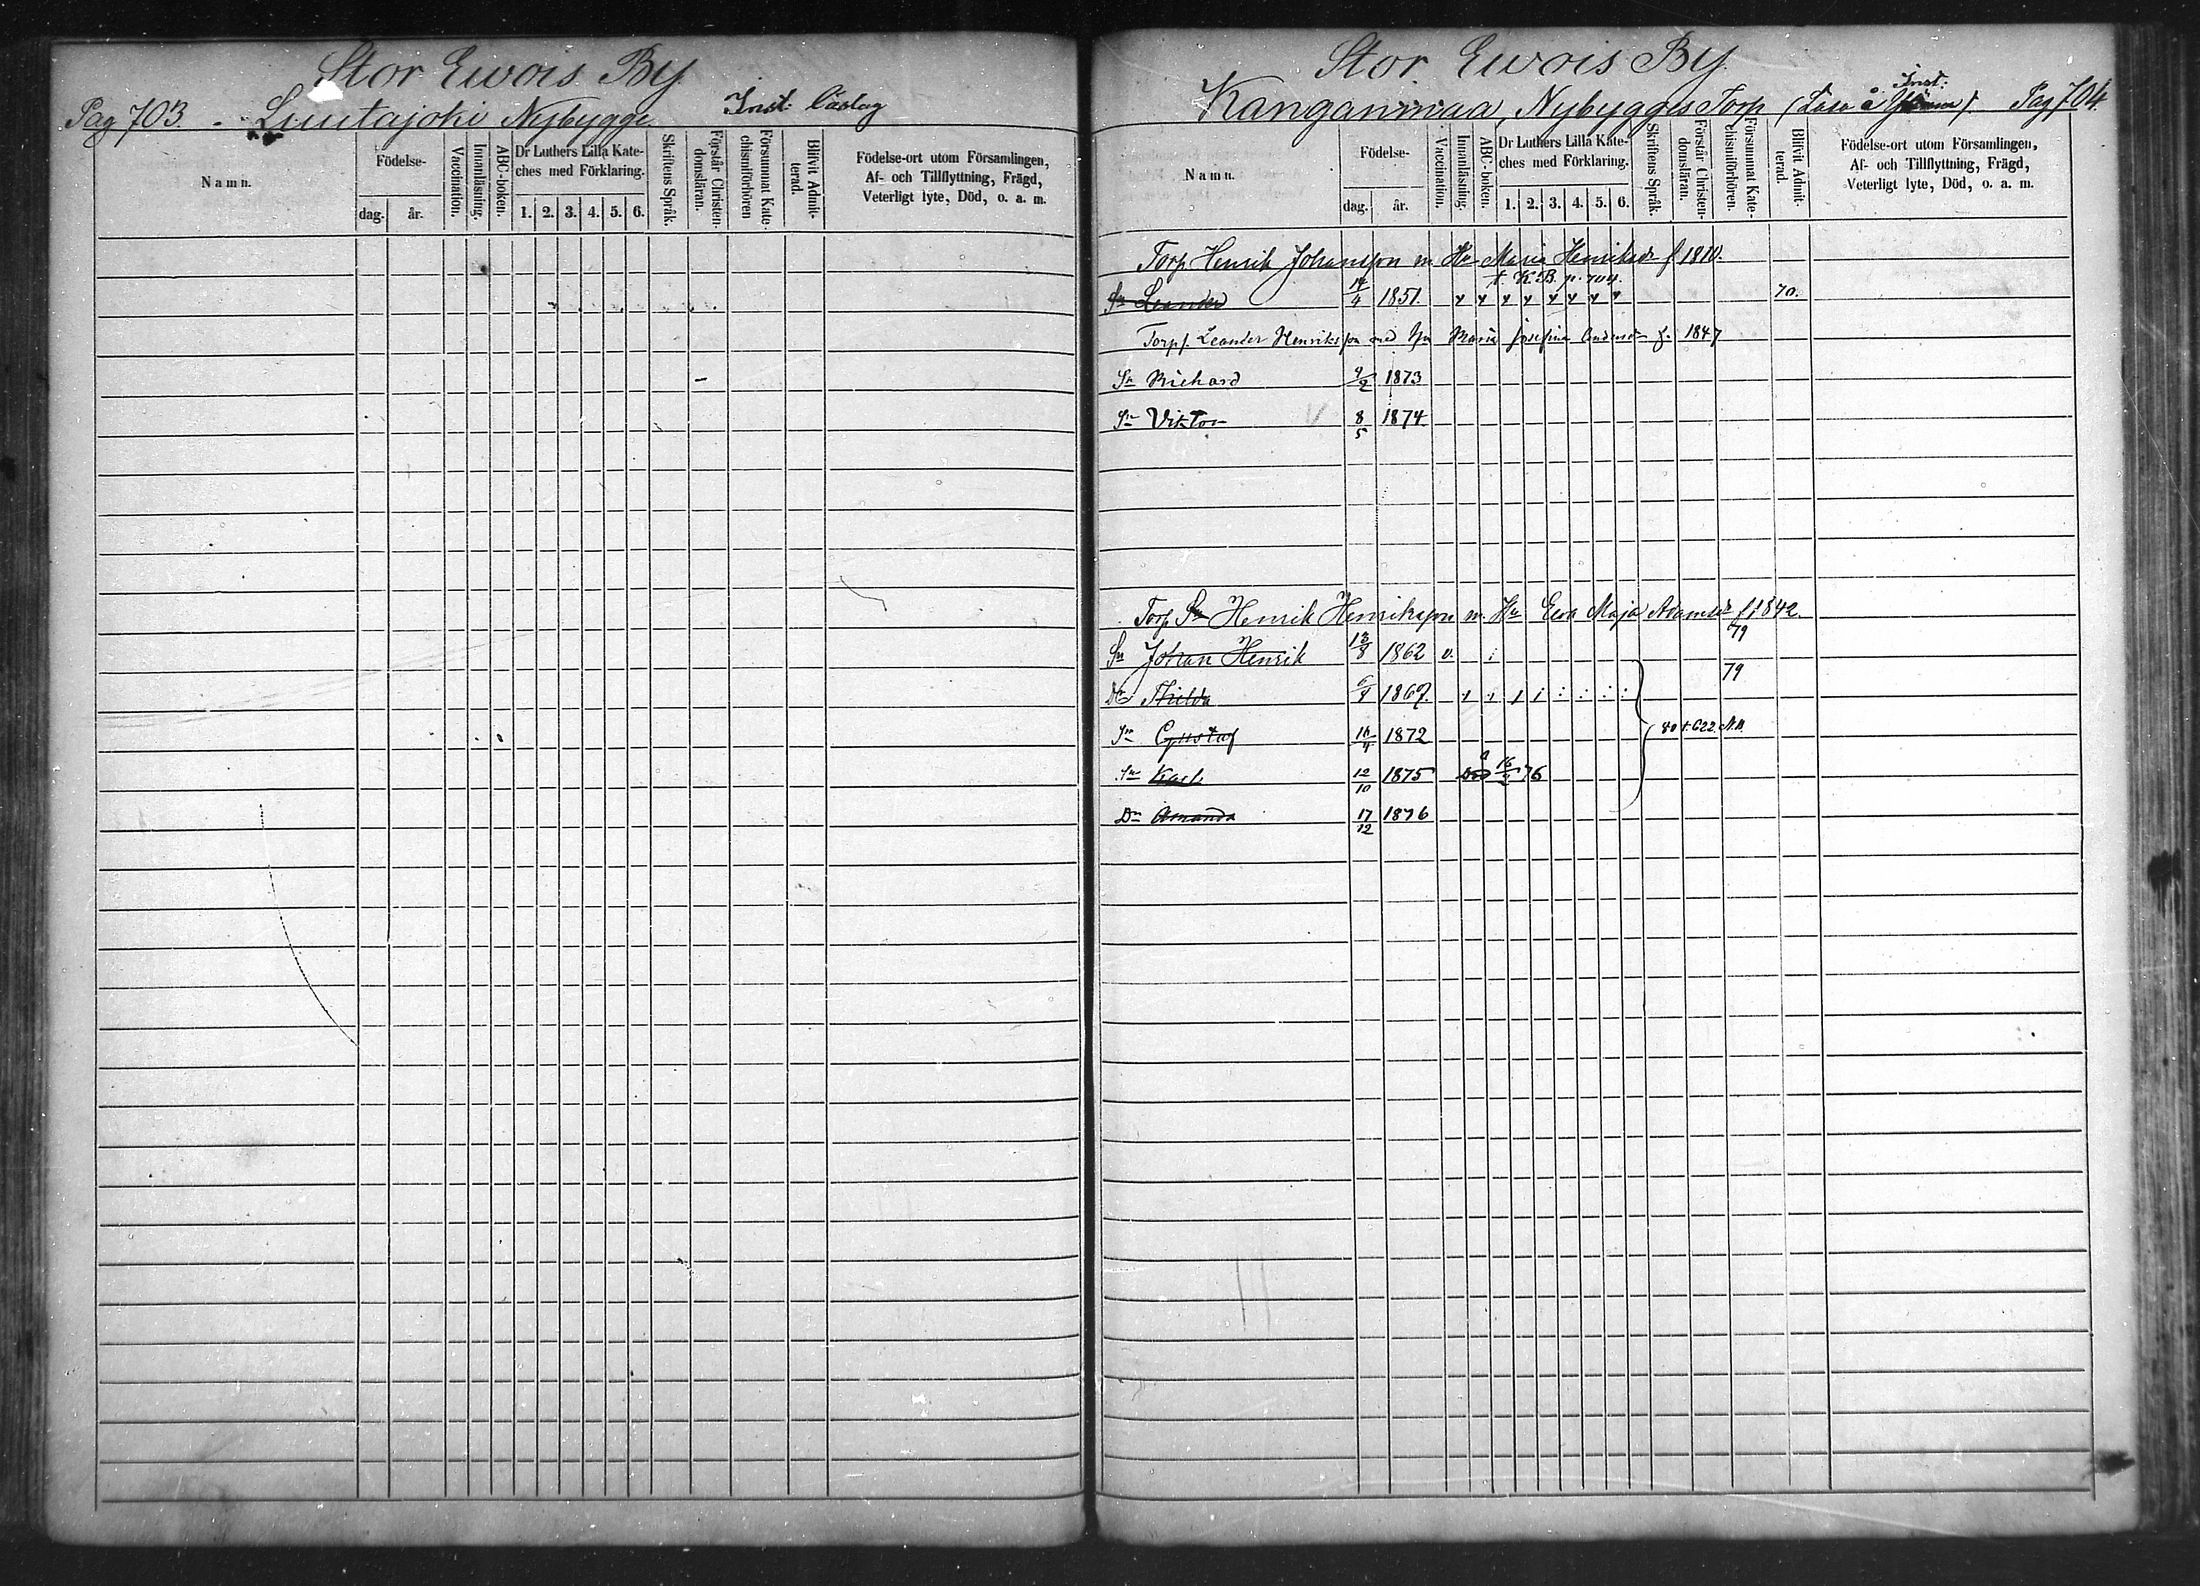 Stor Ewois By
Pag 703. Luutajoki Nybygge Inst. läslag
Namn.
Födelse-
dag.
år.
Vaccination.
Innanläsning.
ABC-boken.
Dr Luthers Lilla Kate-
ches med Förklaring.
1. 2. 3. 4. 5. 6.
Skriftens Språk.
Förstår Christen-
domsläran.
Försummat Kate-
chismiförhören
Blifvit Admit-
terad.
Födelse-ort utom Församlingen,
Af- och Tillflyttning, Frägd,
Veterligt lyte, Död, o. a. m.
Stor Ewois By
Inst.
Kanganmaa, Nybygges Torp Pag 704.
Namn.
Födelse-
dag.
år.
Vaccination.
Innanläsning.
ABC-boken.
Dr Luthers Lilla Kate-
ches med Förklaring.
1. 2. 3. 4. 5. 6.
Skriftens Språk.
Förstår Christen-
domsläran.
Försummat Kate-
chismiförhören.
Blifvit Admit-
terad.
Födelse-ort utom Församlingen,
Af- och Tillflyttning, Frägd,
Veterligt lyte, Död, o. a. m.
Torp Henrik Johansson m. Hu Maria Henriksdr f 1810.
t. K.B. p. 704.
Sn Leander 14/4 1851. 70.
Torp. Leander Henriksson med Hu Maria Josefina Andersdr f. 1847
Sn Richard 9/2 1873
Sn Viktor 8/5 1874
Torp Sn Henrik Henriksson m. Hu Eva Maja Adamsdr f 1842.
79
Sn Johan Henrik 13/8 1862 v.
79
Dr Thilda 1867.
80 t. 622.
Sn Gustaf 16/4 1872
Sn Karl 12/10 1875 Död 76
Dr Amanda 17/12 1876